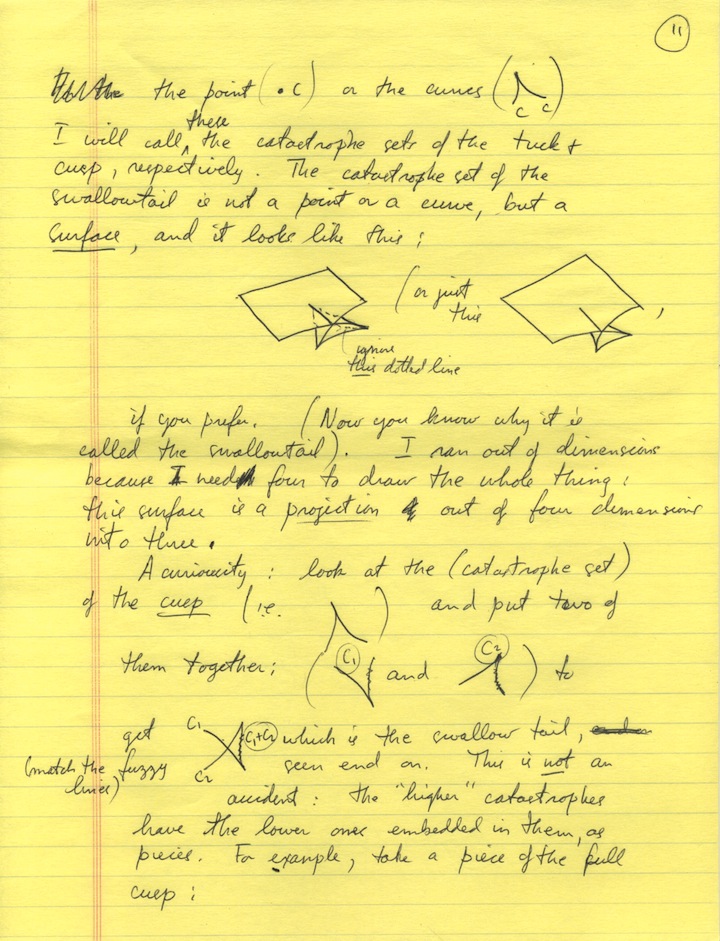 11
the point (• C) or the curves ( C C )
I will call these the catastrophe sets of the tuck &
cusp, respectively. The catastrophe set of the
swallowtail is not a point or a curve, but a
surface, and it looks like this:
(or just
this ,
ignore
this dotted line
if you prefer. (Now you know why it is
called the swallowtail). I ran out of dimensions
because I need four to draw the whole thing:
this surface is a projection out of four dimensions
into three.
A curiousity: look at the (catastrophe set)
of the cusp (i.e. ) and put two of
them together: ( C1 and C2 ) to
get C1 C2 C1+C2 which is the swallow tail,
(match the fuzzy lines) seen end on. This is not an
accident: the "higher" catastrophes
have the lower ones embedded in them, as
pieces. For example, take a piece of the full
cusp: